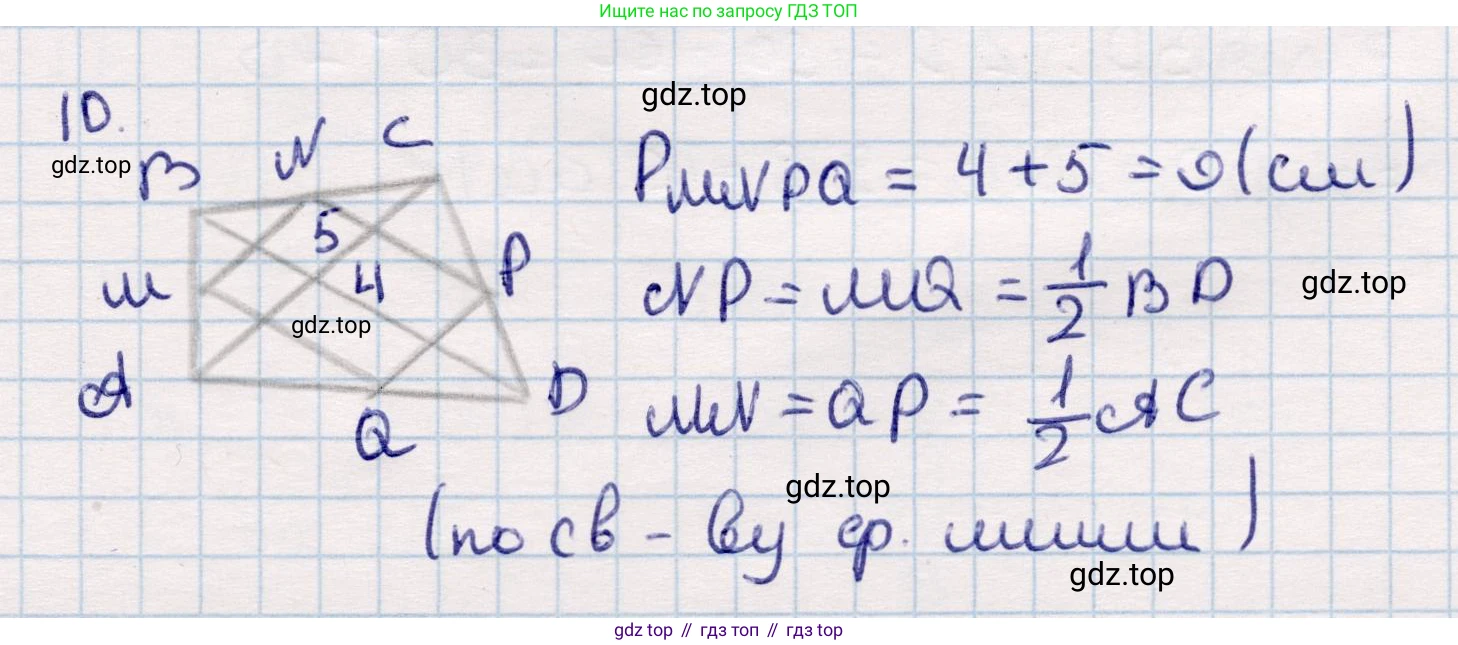 Ищите нас по запросу ГДЗ ТОП
10.
gdz.top
B N C
5
M 4 P
gdz.top
A Q D
gdz.top
P MNPQ = 4 + 5 = 9 (см)
NP = MQ = 1/2 BD
gdz.top
MN = QP = 1/2 AC
gdz.top
(по св-ву ср. линии)
gdz.top
gdz top // гдз топ // gdz top